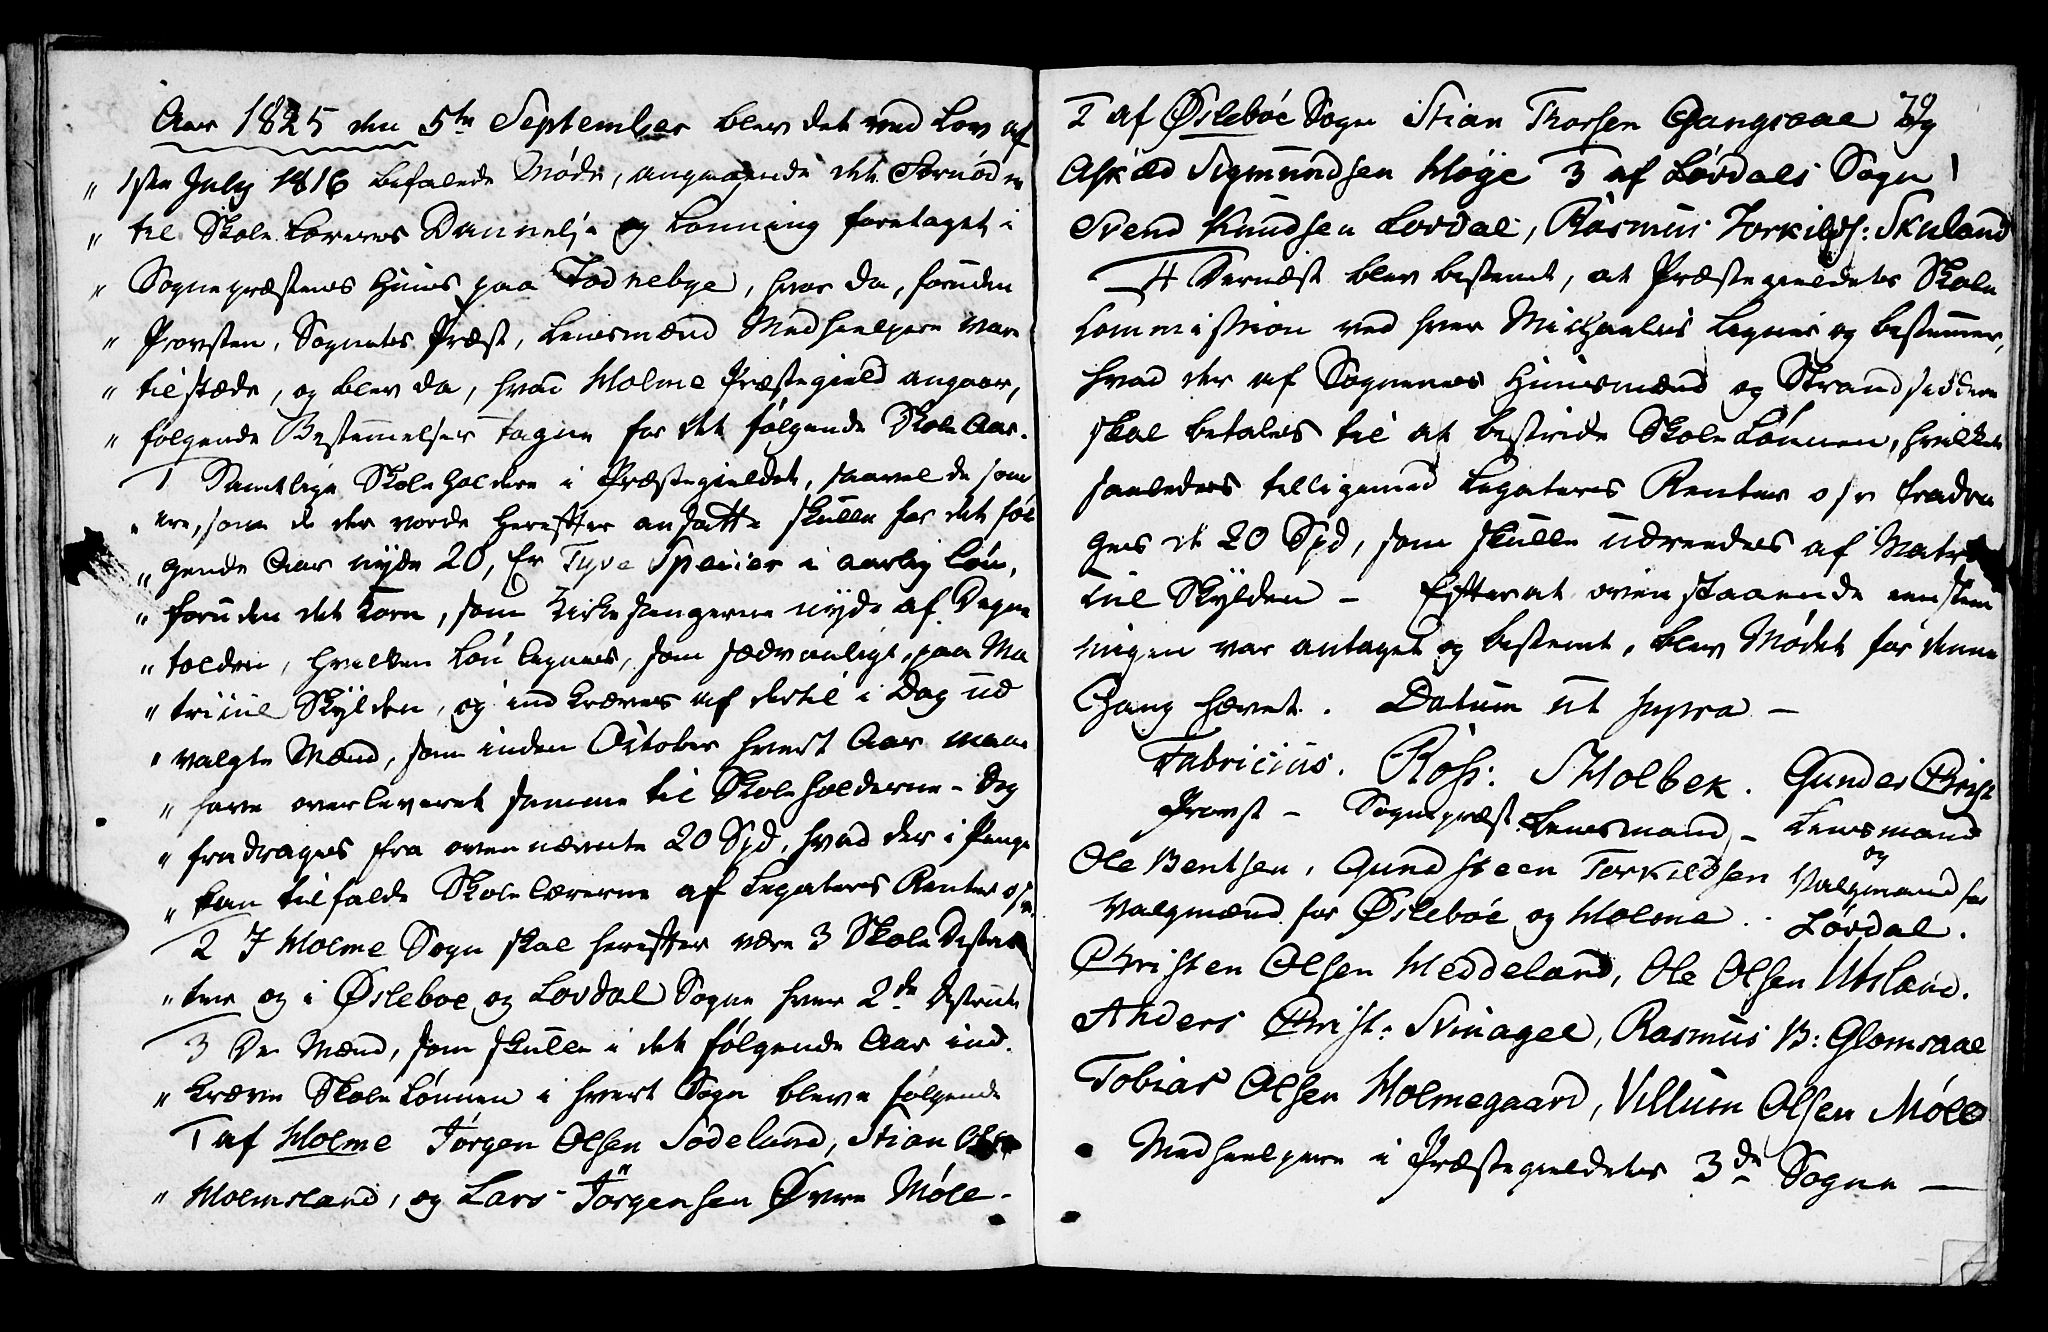 Aar 1825 den 5te September blev det ved Lov af
" 1ste July 1816 befalede Møde, angaaende det Fornødne
" til Skole Læreres Dannelse og Lønning foretaget i
" Sognepræstens Huus paa Todnebye, hvor da, foruden
" Provsten, Sognets Præst, Lensmænd Medhielpere vare
" tilstæde, og blev da, hvad Holme Præstegield angaar,
" følgende Bestemmelser tagne for det følgende Skole Aar.
1 Samtlige Skoleholdere i Præstegieldet, saavel de som
" ere, som de der vorde herefter ansatte skulle for det føl
" gende Aar nyde 20, Er Tyve Specier i aarlig Løn,
" foruden det Korn, som Kirkesangerne nyde af Degne
" tolden, hvilken Løn lignes, som sædvanligt, paa Ma
" tricul Skylden, og indkræves af dertil i Dag ud
" valgte Mænd, som inden October hvert Aar maae
" have overleveret samme til Skoleholderne - Dog
" fradrages fra ovennævnte 20 Spd, hvad der i Penge
" kan tilfalde Skolelærerne af Legaters Renter osv.
2 I Holme Sogn skal herefter være 3 Skole Distric
" ter og i Øsleboe og Lovdal Sogne hver 2de Districter
3 De Mænd, som skulle i det følgende Aar ind
" kræve Skole Lønnen i hvert Sogn bleve følgende
1 af Holme Jørgen Olsen Sodeland, Stian Olsen
" Holmsland, og Lars Jørgensen Øvre Møll -
2 af Øsleboe Sogn Stian Thorsen Gangsaae og 79
Askild Sigmundsen Høye 3 af Løvdals Sogn
Svend Knudsen Lovdal, Rasmus Torkilds: Skuland
4 Dernæst blev bestemt, at Præstegieldets Skole
Commission ved hver Michaelis ligner og bestemmer,
hvad der af Sognenes Huusmænd og Strandsiddere
skal betales til at bestride Skole Lønnen, hvilket
saaledes tilligemed Legaters Renter osv fradra
ges de 20 Spd, som skulle udredes af Matri
cul Skylden - Efterat ovenstaaende
var antaget og bestemt, blev Mødet for denne
Gang hævet. Datum ut supra -
Fabricius. Ross: S Holbek. Gunder Christ
Provst - Sognepræst. Lensmand - Lensmand
og
Ole Bentsen, Gundsteen Torkildsen Valgmand for
Valgmænd for Øsleboe og Holme. Løvdal.
Christen Olsen Heddeland, Ole Olsen Udsland.
Anders Christ: Svinagel, Rasmus B: Glomsaae
Tobias Olsen Holmegaard, Villum Olsen Møll
Medhielpere i Præstegieldets 3de Sogne -